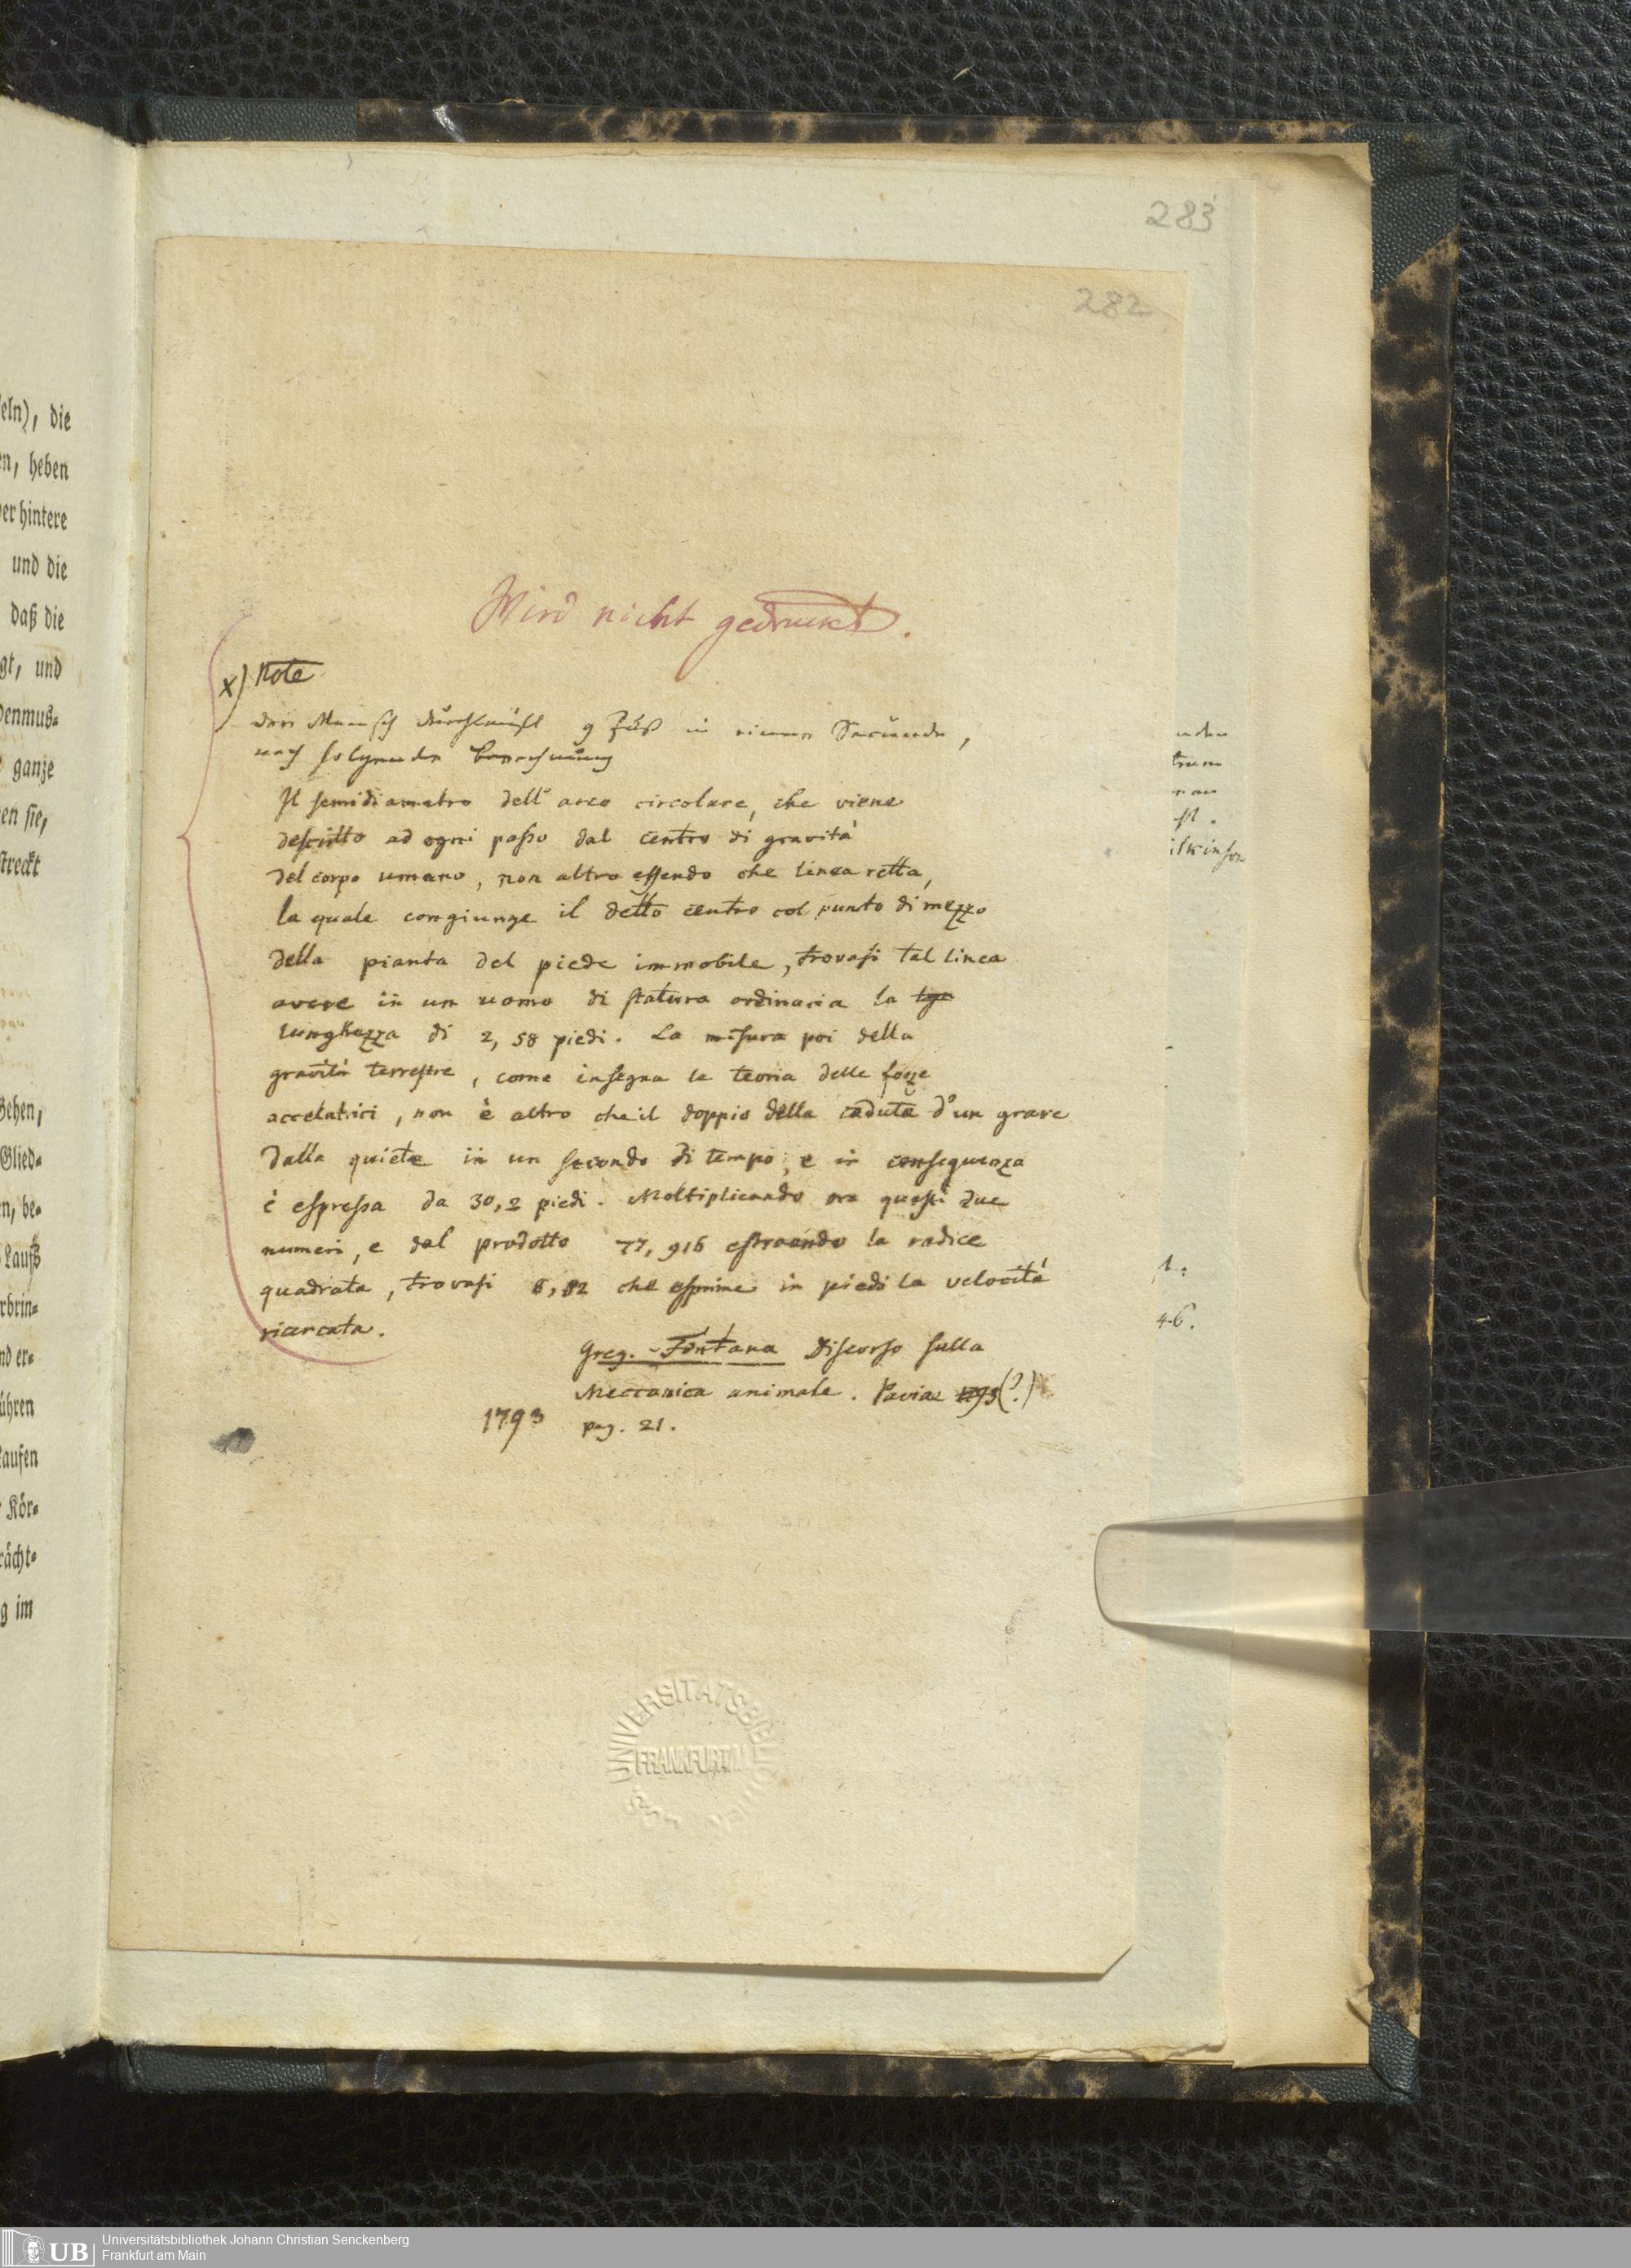 283
282
eln), die
en, heben
er hintere
und die
daß die
gt, und
denmus⸗
ganze
en sie,
streckt
Gehen,
Glied⸗
en, be⸗
Lauf
rbrin⸗
nd er⸗
ühren
Laufen
Kör⸗
rächt⸗
g im
Wird nicht gedruckt.
x) Note
Der Mensch durchläuft 9 Fuß in einer Secunde,
nach folgender Berechnung
Il semidiametro dell' arco circolare, che viene
descritto ad ogni passo dal centro di gravità
del corpo umano, non altro essendo che linea retta,
la quale congiunge il detto centro col punto di mezzo
della pianta del piede immobile, trovasi tal linea
avere in un uomo di statura ordinaria la
lunghezza di 2,58 piedi. La misura poi della
gravità terrestre, come insegna la teoria delle forze
accelatrici, non è altro che il doppio della caduta d'un grave
dalla quiete in un secondo di tempo, e in consequenza
è espressa da 30,2 piedi. Moltiplicando ora questi due
numeri, e dal prodotto 77,916 estraendo la radice
quadrata, trovasi 8,82 che esprime in piedi la velocità
ricercata.
Greg. Fontana Discorso sulla
Meccanica animale. Pavia 1793 (?)
1793 pag. 21.
ilkinson
1.
46.
UNIVERSITÄTSBIBL
FRANKFURT/M
UB Universitätsbibliothek Johann Christian Senckenberg
Frankfurt am Main